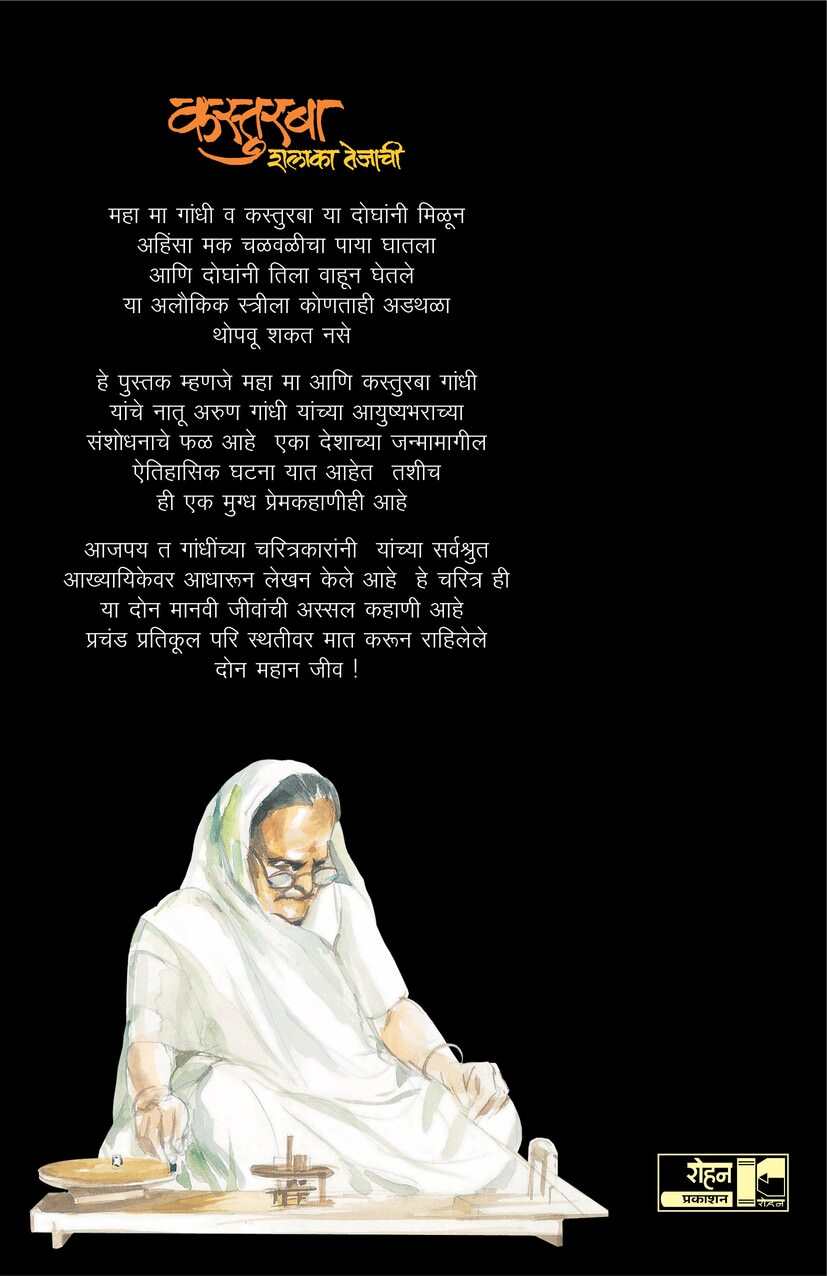 कस्तुरबा
शलाका तेजाची
महा मा गांधी व कस्तुरबा या दोघांनी मिळून
अहिंसा मक चळवळीचा पाया घातला
आणि दोघांनी तिला वाहून घेतले
या अलौकिक स्त्रीला कोणताही अडथळा
थोपवू शकत नसे
हे पुस्तक म्हणजे महा मा आणि कस्तुरबा गांधी
यांचे नातू अरुण गांधी यांच्या आयुष्यभराच्या
संशोधनाचे फळ आहे एका देशाच्या जन्मामागील
ऐतिहासिक घटना यात आहेत तशीच
ही एक मुग्ध प्रेमकहाणीही आहे
आजपय त गांधींच्या चरित्रकारांनी यांच्या सर्वश्रुत
आख्यायिकेवर आधारून लेखन केले आहे हे चरित्र ही
या दोन मानवी जीवांची अस्सल कहाणी आहे
प्रचंड प्रतिकूल परि स्थतीवर मात करून राहिलेले
दोन महान जीव !
रोहन
प्रकाशन
रोहन